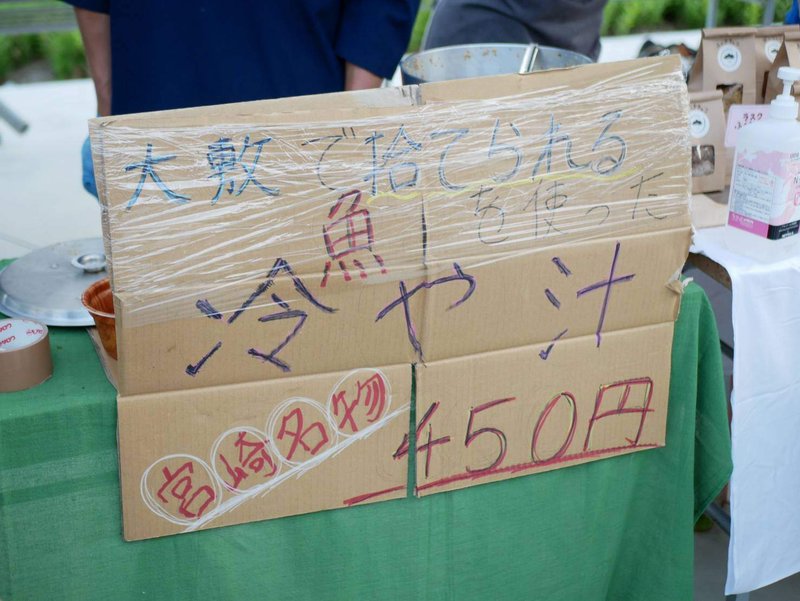 大敷で捨てられる
魚を使った
冷や汁
宮崎名物
450円
ラスク